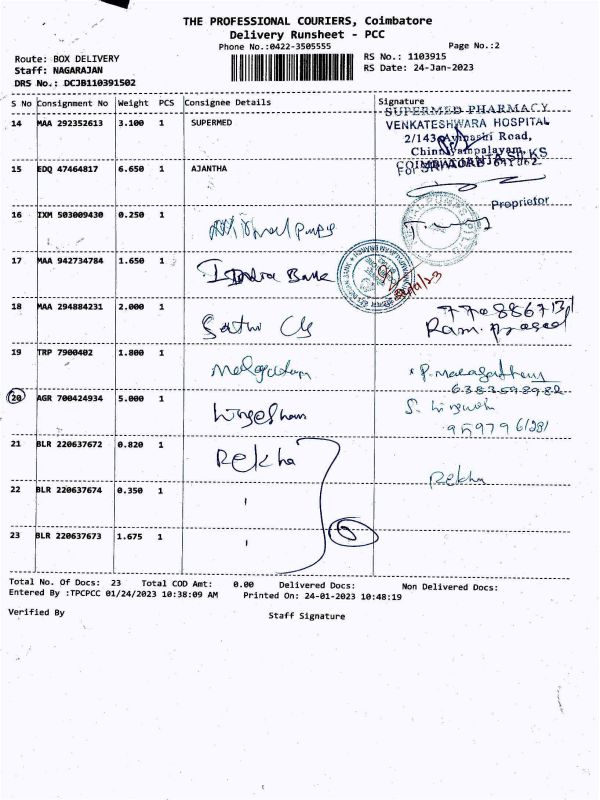 THE PROFESSIONAL COURIERS, Coimbatore
Delivery Runsheet - PCC
Phone No.:0422-3505555
Page No.:2
Route: BOX DELIVERY
RS No.: 1103915
Staff: NAGARAJAN
RS Date: 24-Jan-2023
DRS No.: DCJB110391502
S No Consignment No Weight PCS Consignee Details Signature
14 MAA 292352613 3.100 1 SUPERMED
SUPERMED PHARMACY
VENKATESHWARA HOSPITAL
2/143, Avinashi Road,
Chinniyampalayam,
15 EDQ 47464817 6.650 1 AJANTHA
Proprietor
16 IXM 503009430 0.250 1
17 MAA 942734784 1.650 1 Indra Bank
18 MAA 294884231 2.000 1
Ram. prasad
19 TRP 7900402 1.800 1
6383598982
20 AGR 700424934 5.000 1
21 BLR 220637672 0.820 1 Rekha
Rekha
22 BLR 220637674 0.350 1
23 BLR 220637673 1.675 1
Total No. Of Docs: 23 Total COD Amt: 0.00 Delivered Docs: Non Delivered Docs:
Entered By :TPCPCC 01/24/2023 10:38:09 AM Printed On: 24-01-2023 10:48:19
Verified By Staff Signature